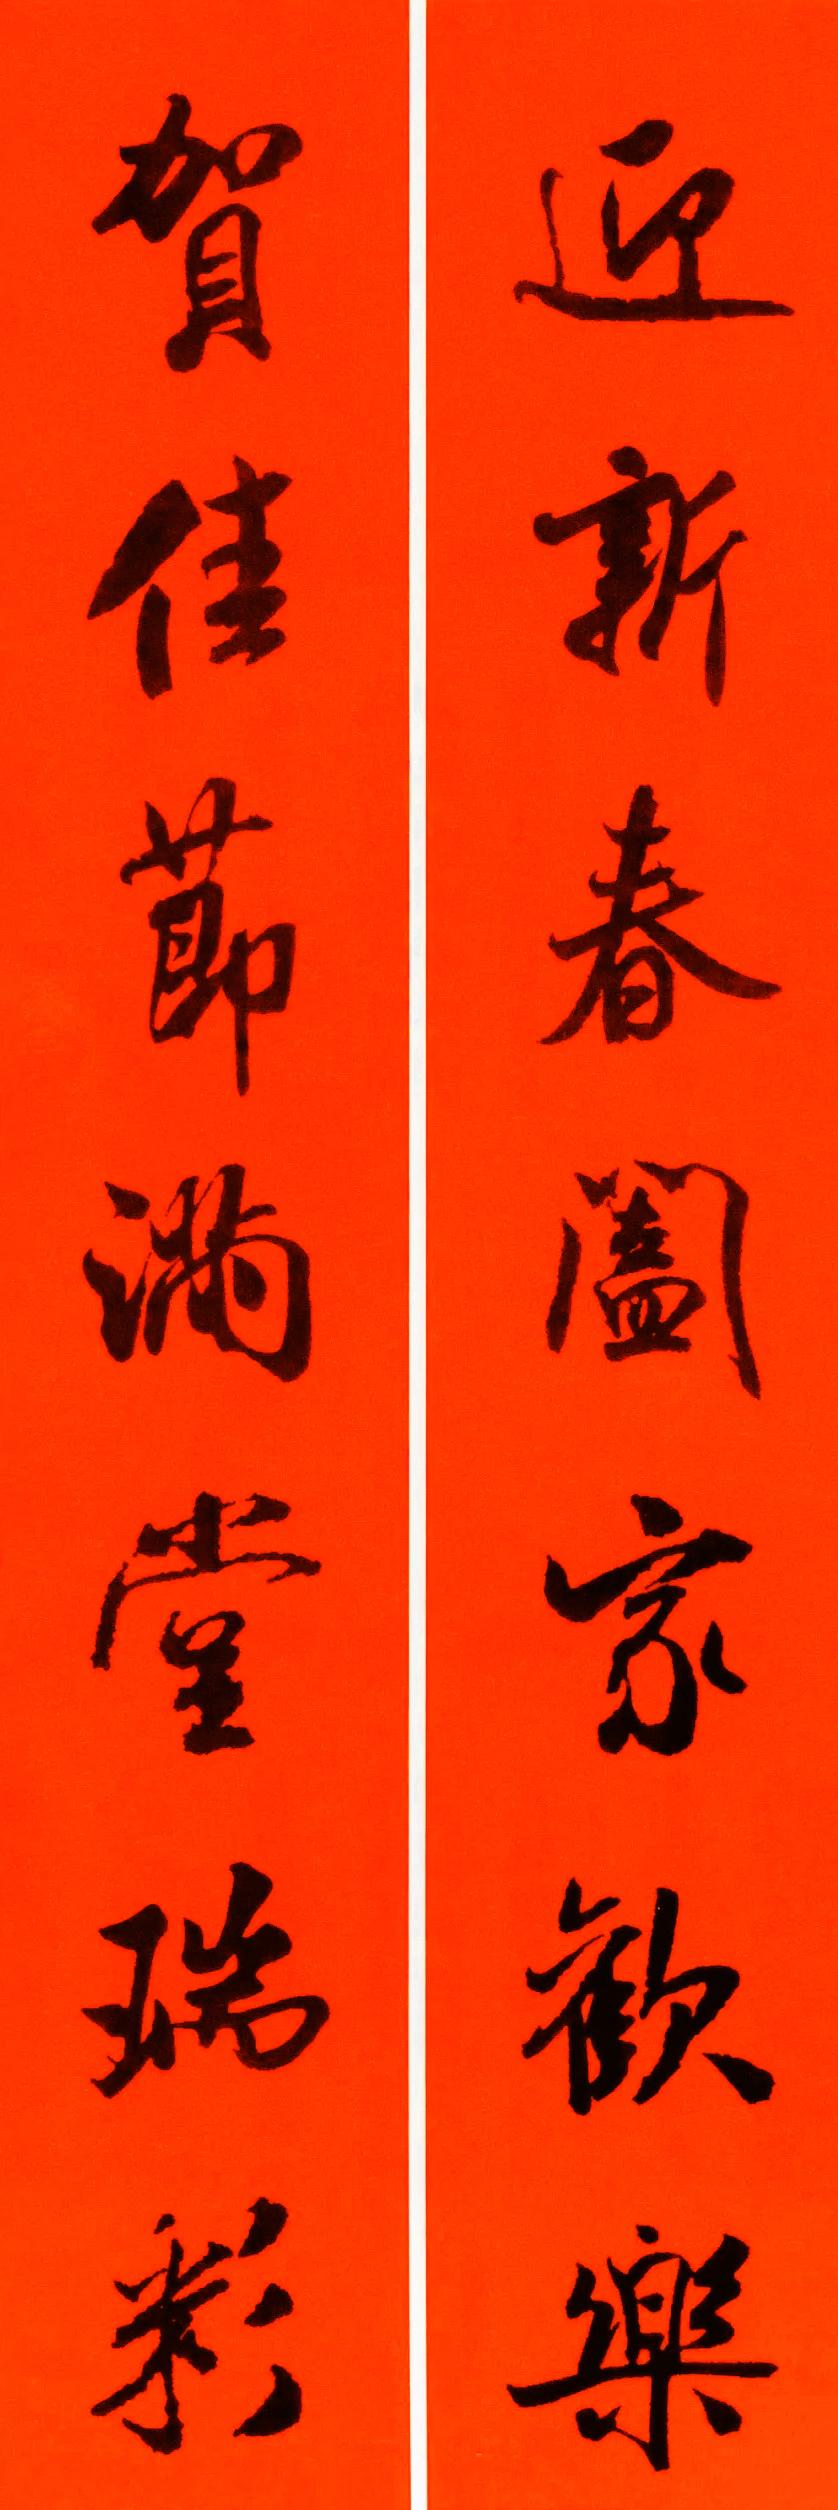 迎新春闔家歡樂
賀佳節滿堂瑞彩